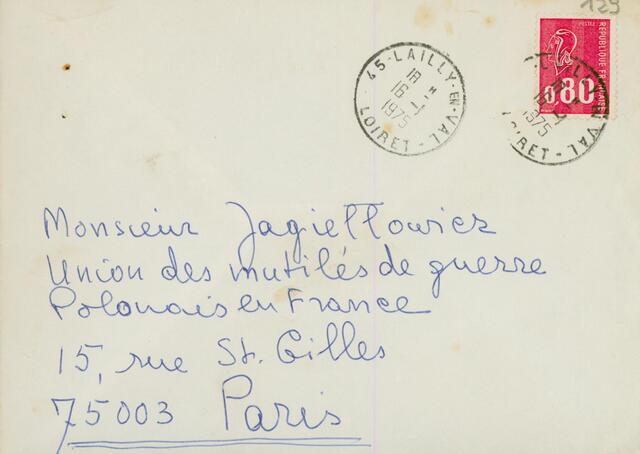 129
45-LAILLY-EN-VAL
18 H
16 -1-
1975
LOIRET
REPUBLIQUE FRANÇAISE
0,80
1975
Monsieur Jagiełłowicz
Union des mutilés de guerre
Polonais en France
15, rue St. Gilles
75003 Paris